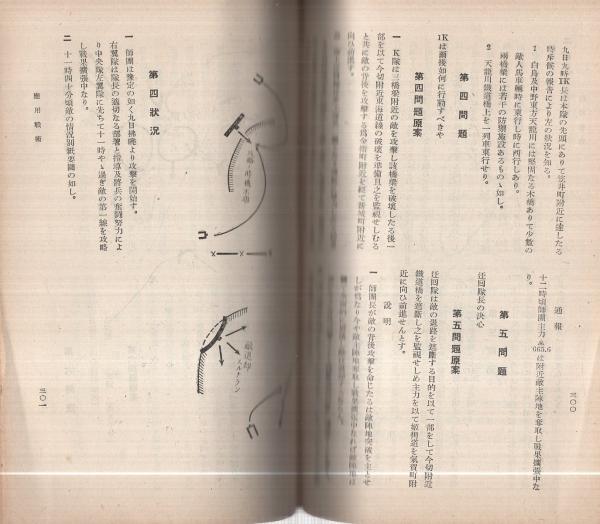 九日九時1K長は本隊の先頭にありて笠井町附近に達したる
時斥候の報告により左の狀況を知る。
1 白鳥及中野東方天龍川には堅固なる木橋ありて少數の
敵人馬車輛時に東行し時に西行しあり。
兩橋梁には若干の防禦施設あるものゝ如し。
2 天龍川鐵道橋上を一列車東行せり。
第四問題
1Kは爾後如何に行動すべきや
第四問題原案
一 K隊は三橋梁附近の敵を攻擊し該橋梁を破壞したる後一
部を以て今切附近東海道線の破壞を準備且之を監視せしむる
と共に敵の背後を攻擊する爲
向ひ前進す。
通報
十二時頃師團主力は065.6附近敵主陣地を奪取し戰果擴張中な
り。
第五問題
迂回隊長の決心
第五問題原案
迂回隊は敵の退路を遮斷する目的を以て一部をして今切附近
鐵道橋を遮斷し之を監視せしめ主力を以て姬街道を氣賀町附
近に向ひ前進せんとす。
說明
一 師團長が敵の背後攻擊を命じたるは敵陣地突破を主とせ
しが爲なり今や敵主陣地奪取し戰果擴張中なれば
三〇〇
第四狀況
一 師團は豫定の如く九日拂曉より攻擊を開始す。
右翼隊は隊長の適切なる部署と指導及將兵の奮鬪努力によ
り中央隊左翼隊に先ちて十一時やゝ過ぎ敵の第一線を攻略
し戰果擴張中なり。
二 十一時四十分頃敵の情況別紙要圖の如し。
敵退却
スルナラン
應用戰術
三〇一